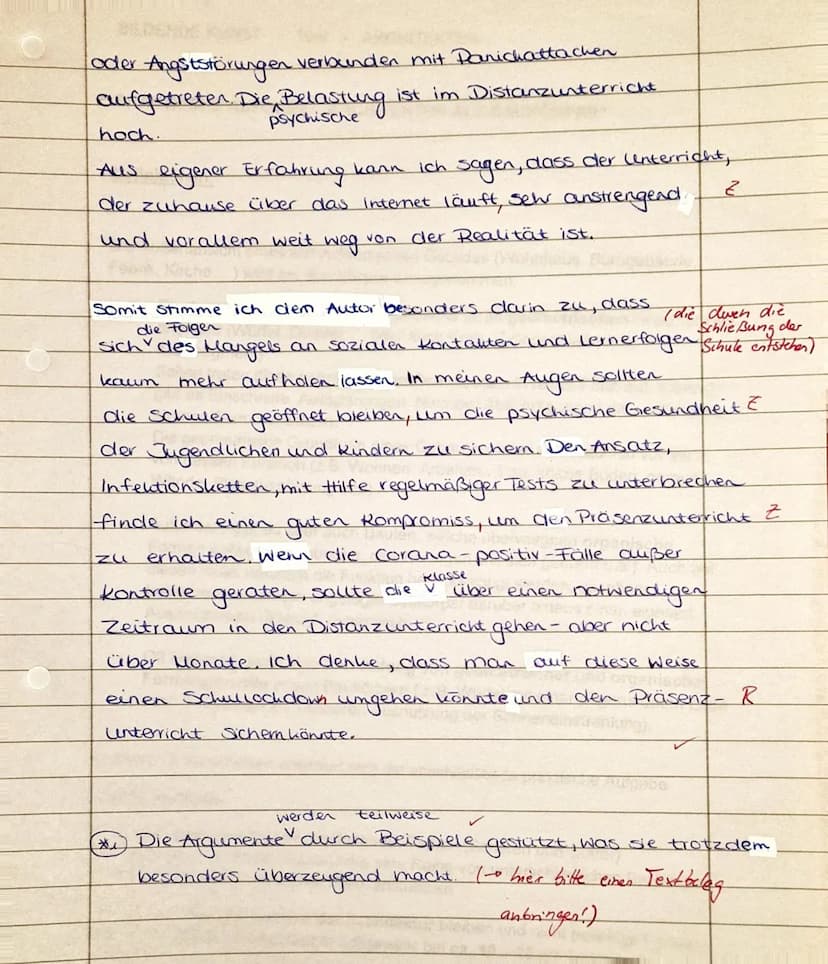 oder Angststörungen verbunden mit Panickattacken
aufgetreten. Die psychische Belastung ist im Distanzunterricht
hoch.
Aus eigener Erfahrung kann ich sagen, dass der Unterricht,
der zuhause über das Internet läuft, sehr anstrengend Z
und vorallem weit weg von der Realität ist.
Somit stimme ich dem Autor besonders darin zu, dass
sich die Folgen des Mangels an sozialen Kontakten und Lernerfolgen (die durch die Schließung der Schule entstehen)
kaum mehr aufholen lassen. In meinen Augen sollten
die Schulen geöffnet bleiben, um die psychische Gesundheit Z
der Jugendlichen und Kindern zu sichern. Den Ansatz,
Infektionsketten, mit Hilfe regelmäßiger Tests zu unterbrechen
finde ich einen guten Kompromiss, um den Präsenzunterricht Z
zu erhalten. Wenn die Corana-positiv-Fälle außer
Kontrolle geraten, sollte die Klasse über einen notwendigen
Zeitraum in den Distanzunterricht gehen - aber nicht
über Monate. Ich denke, dass man auf diese Weise
einen Schullockdown umgehen könnte und den Präsenz- R
unterricht sichern könnte. ✓
*1 Die Argumente werden teilweise ✓ durch Beispiele gestützt, was sie trotzdem
besonders überzeugend macht. (→ hier bitte einen Textbeleg
anbringen!)